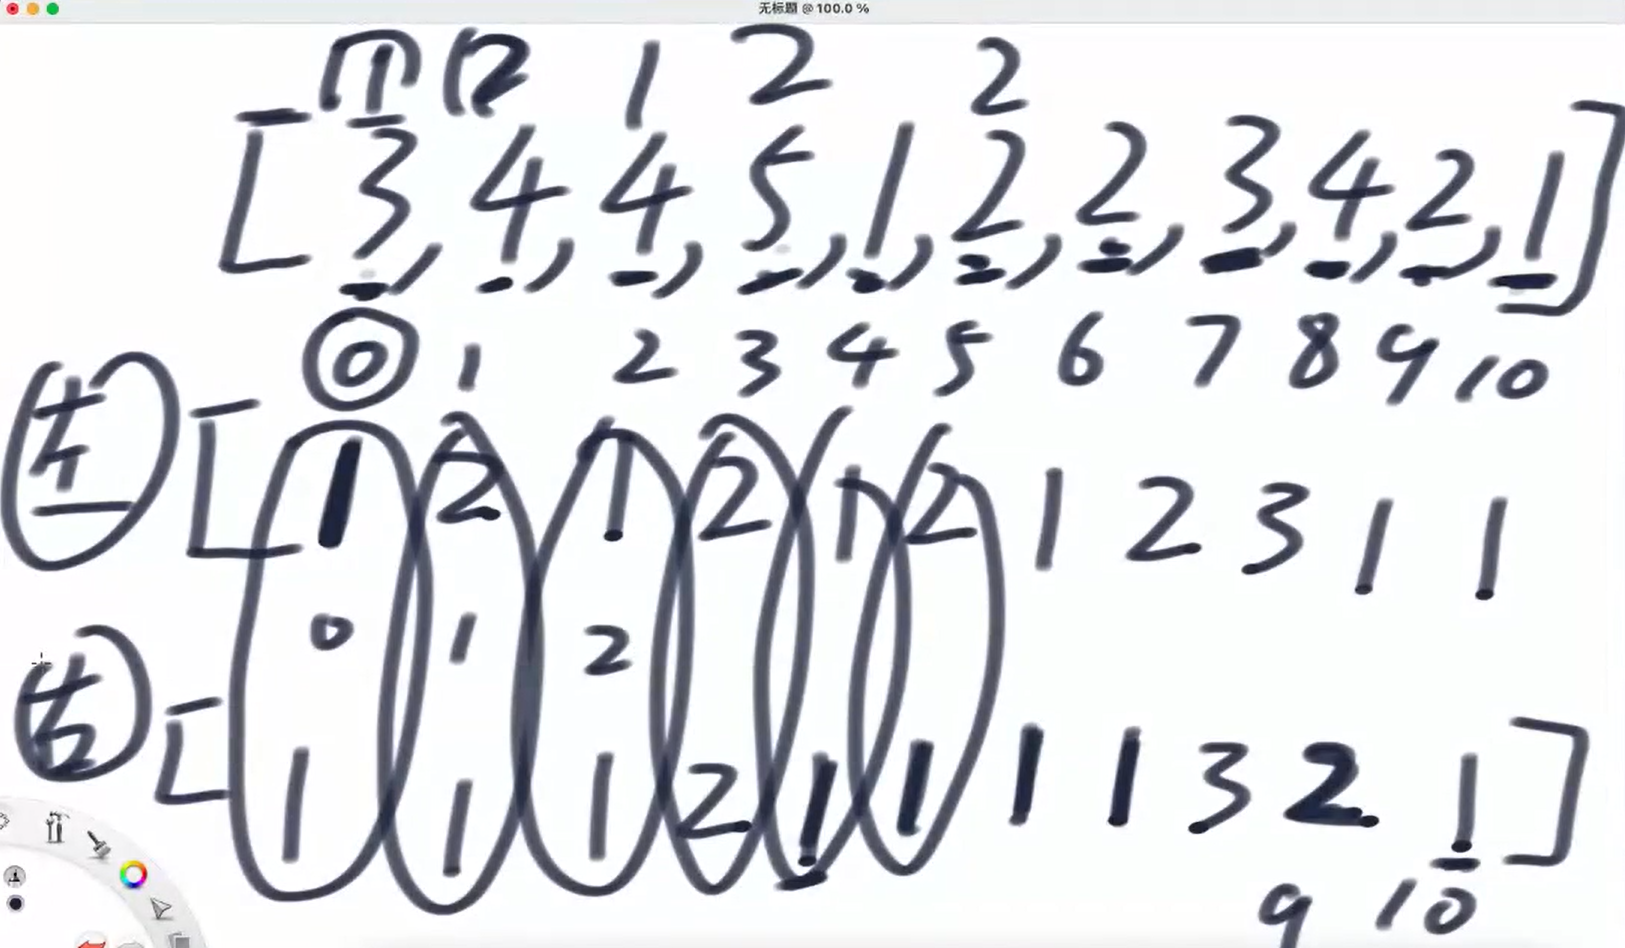 无标题 @ 100.0 %
1 2 1 2 2
[3, 4, 4, 5, 1, 2, 2, 3, 4, 2, 1]
0 1 2 3 4 5 6 7 8 9 10
左 [1 2 1 2 1 2 1 2 3 1 1
0 1 2
右 [1 1 1 2 1 1 1 1 3 2 1]
9 10